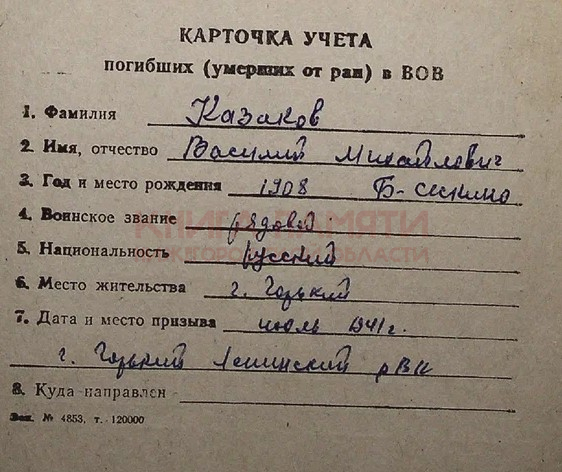 КАРТОЧКА УЧЕТА
погибших (умерших от ран) в ВОВ
1. Фамилия Казаков
2. Имя, отчество Василий Михайлович
3. Год и место рождения 1908 Б-сескино
4. Воинское звание рядовой
КНИГА ПАМЯТИ
НИЖЕГОРОДСКОЙ ОБЛАСТИ
5. Национальность русский
6. Место жительства г. Горький
7. Дата и место призыва июль 1941 г.
г. Горький Ленинский РВК
8. Куда направлен
Зак. № 4853, т. 120000